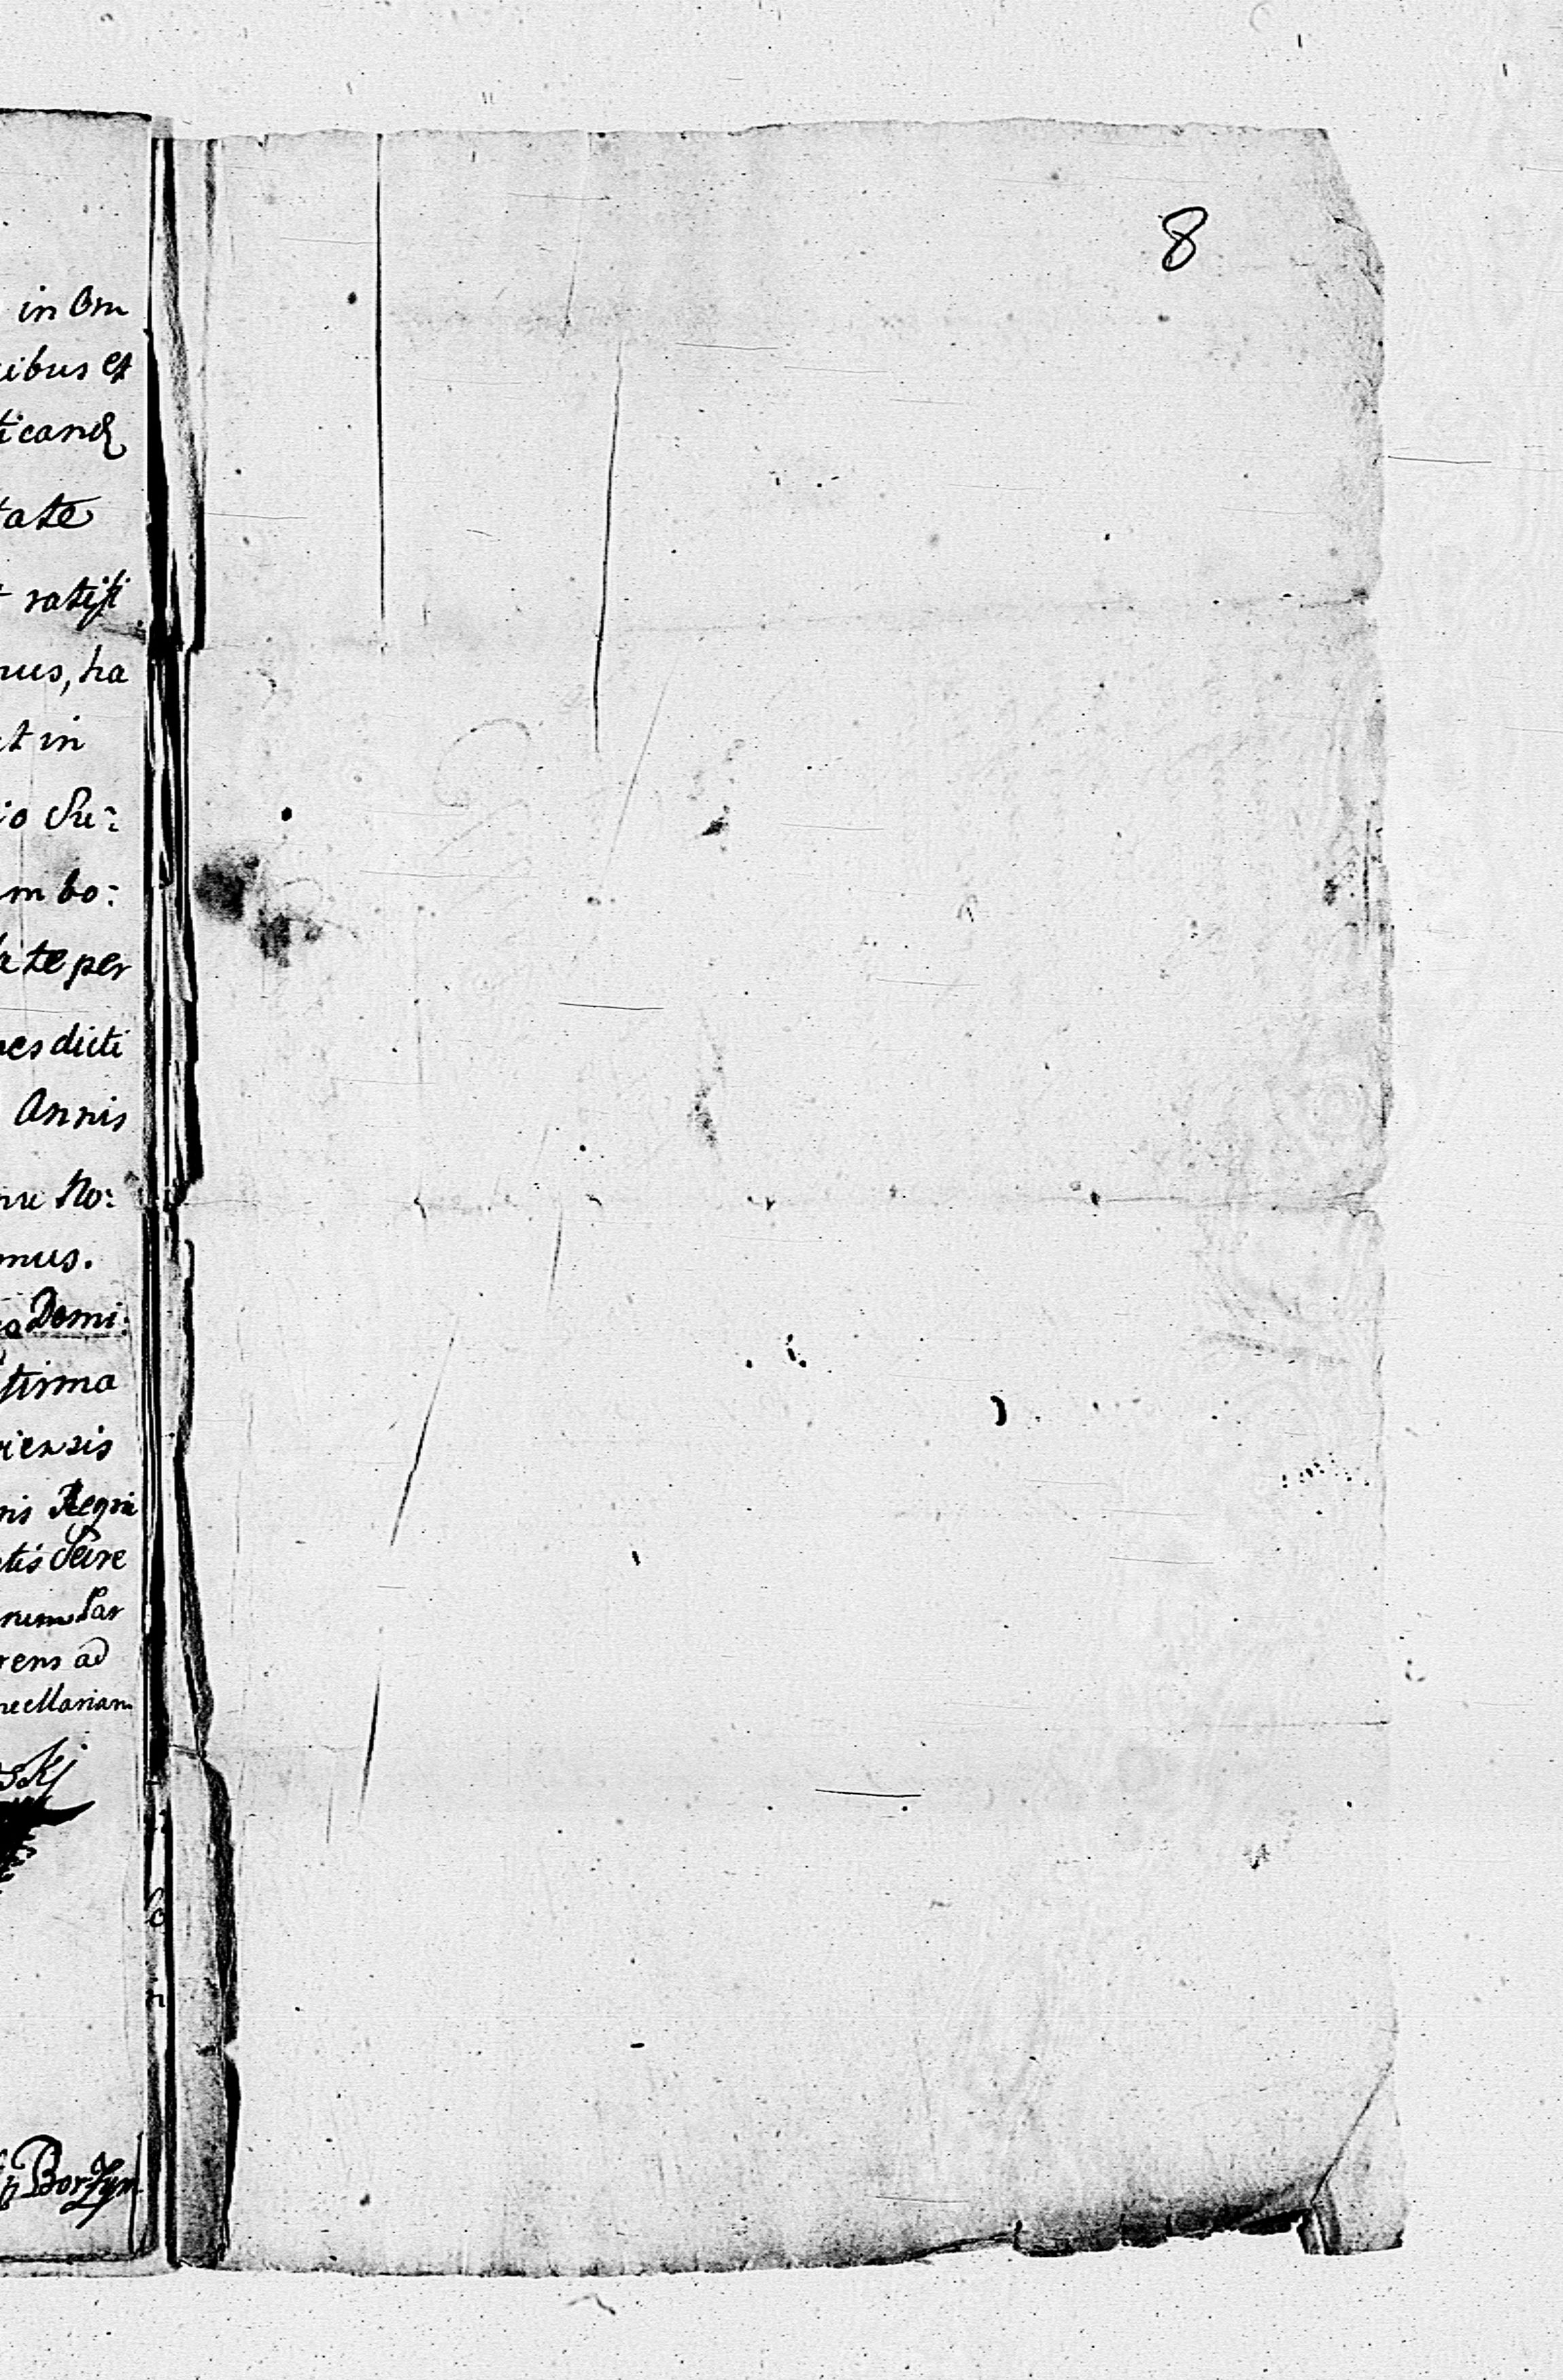 8
in Om
ibus et
ticand
tate
ratifi
nus, ha
et in
io Su:
m bo:
te per
es dicti
Annis
No:
mus.
Domi:
firma
iensis
nis Regni
tis Seire
num Par
rens ad
cellariam
skj
Borzym